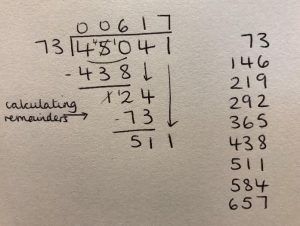 00617
73 45041
- 438
124
calculating
remainders
-73
511
73
146
219
292
365
438
511
584
657